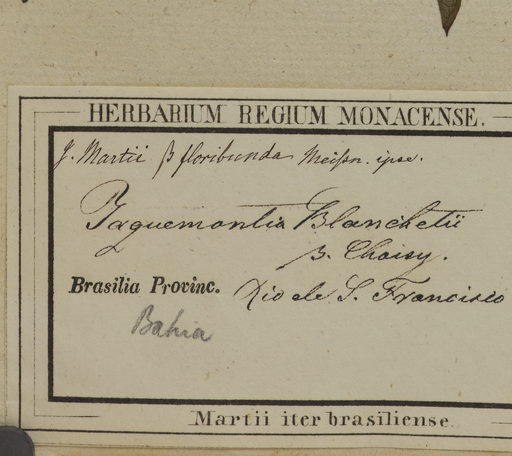 HERBARIUM REGIUM MONACENSE.
J. Martii β floribunda Meisn. ipse.
Jaquemontia Blanchetii
β. Choisy.
Brasilia Provinc. Rio de S. Francisco
Bahia
Martii iter brasiliense